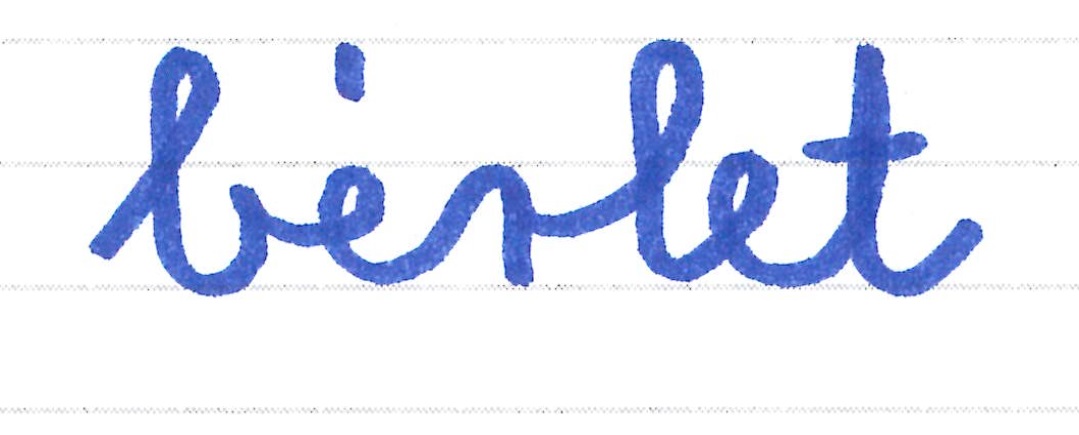 bérlet